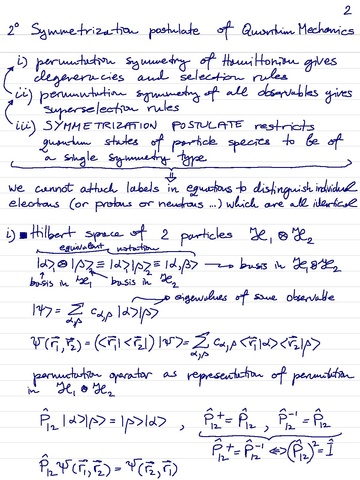 2
2° Symmetrization postulate of Quantum Mechanics
i) permutation symmetry of Hamiltonian gives
degeneracies and selection rules
ii) permutation symmetry of all observables gives
superselection rules
iii) SYMMETRIZATION POSTULATE restricts
quantum states of particle species to be of
a single symmetry type
⇓
we cannot attach labels in equations to distinguish individual
electrons (or protons or neutrons ...) which are all identical
i) ■ Hilbert space of 2 particles ℋ₁ ⊗ ℋ₂
equivalent notation
|α⟩₁ ⊗ |β⟩₂ ≡ |α⟩₁ |β⟩₂ ≡ |α,β⟩ → basis in ℋ₁⊗ℋ₂
basis in ℋ₁ basis in ℋ₂
→ eigenvalues of some observable
|Ψ⟩ = ∑_{α,β} c_{α,β} |α⟩|β⟩
Ψ(r⃗₁, r⃗₂) = (⟨r⃗₁|⟨r⃗₂|) |Ψ⟩ = ∑_{α,β} c_{α,β} ⟨r⃗₁|α⟩⟨r⃗₂|β⟩
permutation operator as representation of permutation
in ℋ₁ ⊗ ℋ₂
P̂₁₂ |α⟩|β⟩ = |β⟩|α⟩ , P̂₁₂⁺ = P̂₁₂ , P̂₁₂⁻¹ = P̂₁₂
P̂₁₂⁺ = P̂₁₂⁻¹ ⇔ (P̂₁₂)² = Î
P̂₁₂ Ψ(r⃗₁, r⃗₂) = Ψ(r⃗₂, r⃗₁)